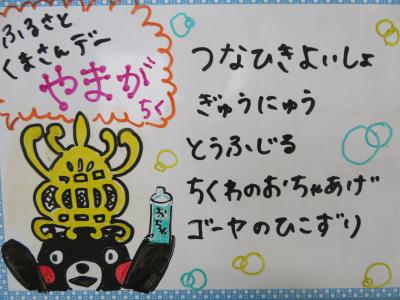 ふるさと
くまさんデー
やまが
ちく
つなひきよいしょ
ぎゅうにゅう
とうふじる
ちくわのおちゃあげ
ゴーヤのひこずり
おちゃ